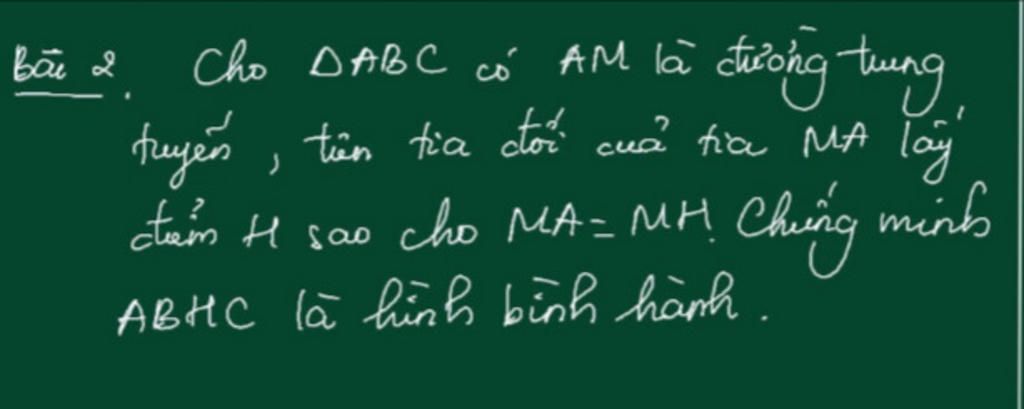 Bài 2. Cho ΔABC có AM là đường trung
tuyến, trên tia đối của tia MA lấy
điểm H sao cho MA = MH. Chứng minh
ABHC là hình bình hành.